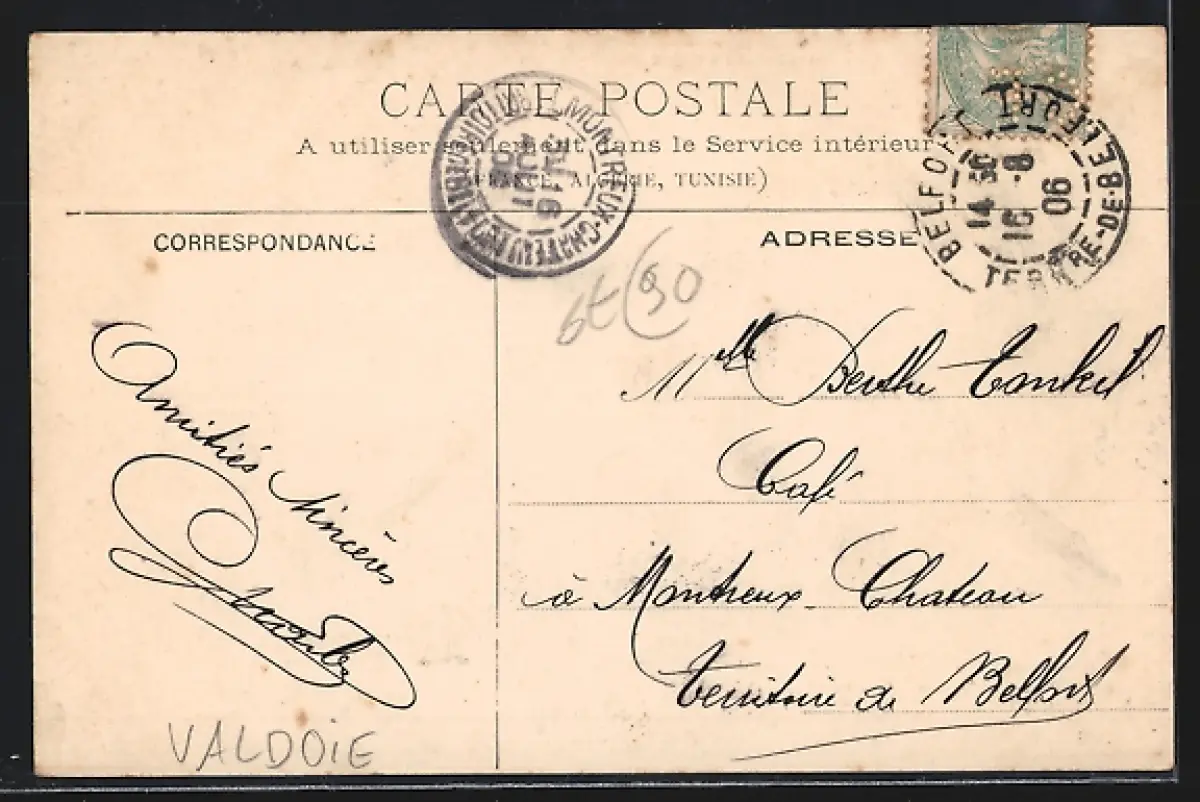 CARTE POSTALE
A utiliser seulement dans le Service intérieur
(FRANCE, ALGÉRIE, TUNISIE)
MONTREUX-CHATEAU
BELFORT
14 30
16 -8
06
TERRRE-DE-BELFORT
CORRESPONDANCE
ADRESSE
Amitiés Sincères
Mlle Berthe
Café
à Montreux-Chateau
Territoire de Belfort
VALDOIE